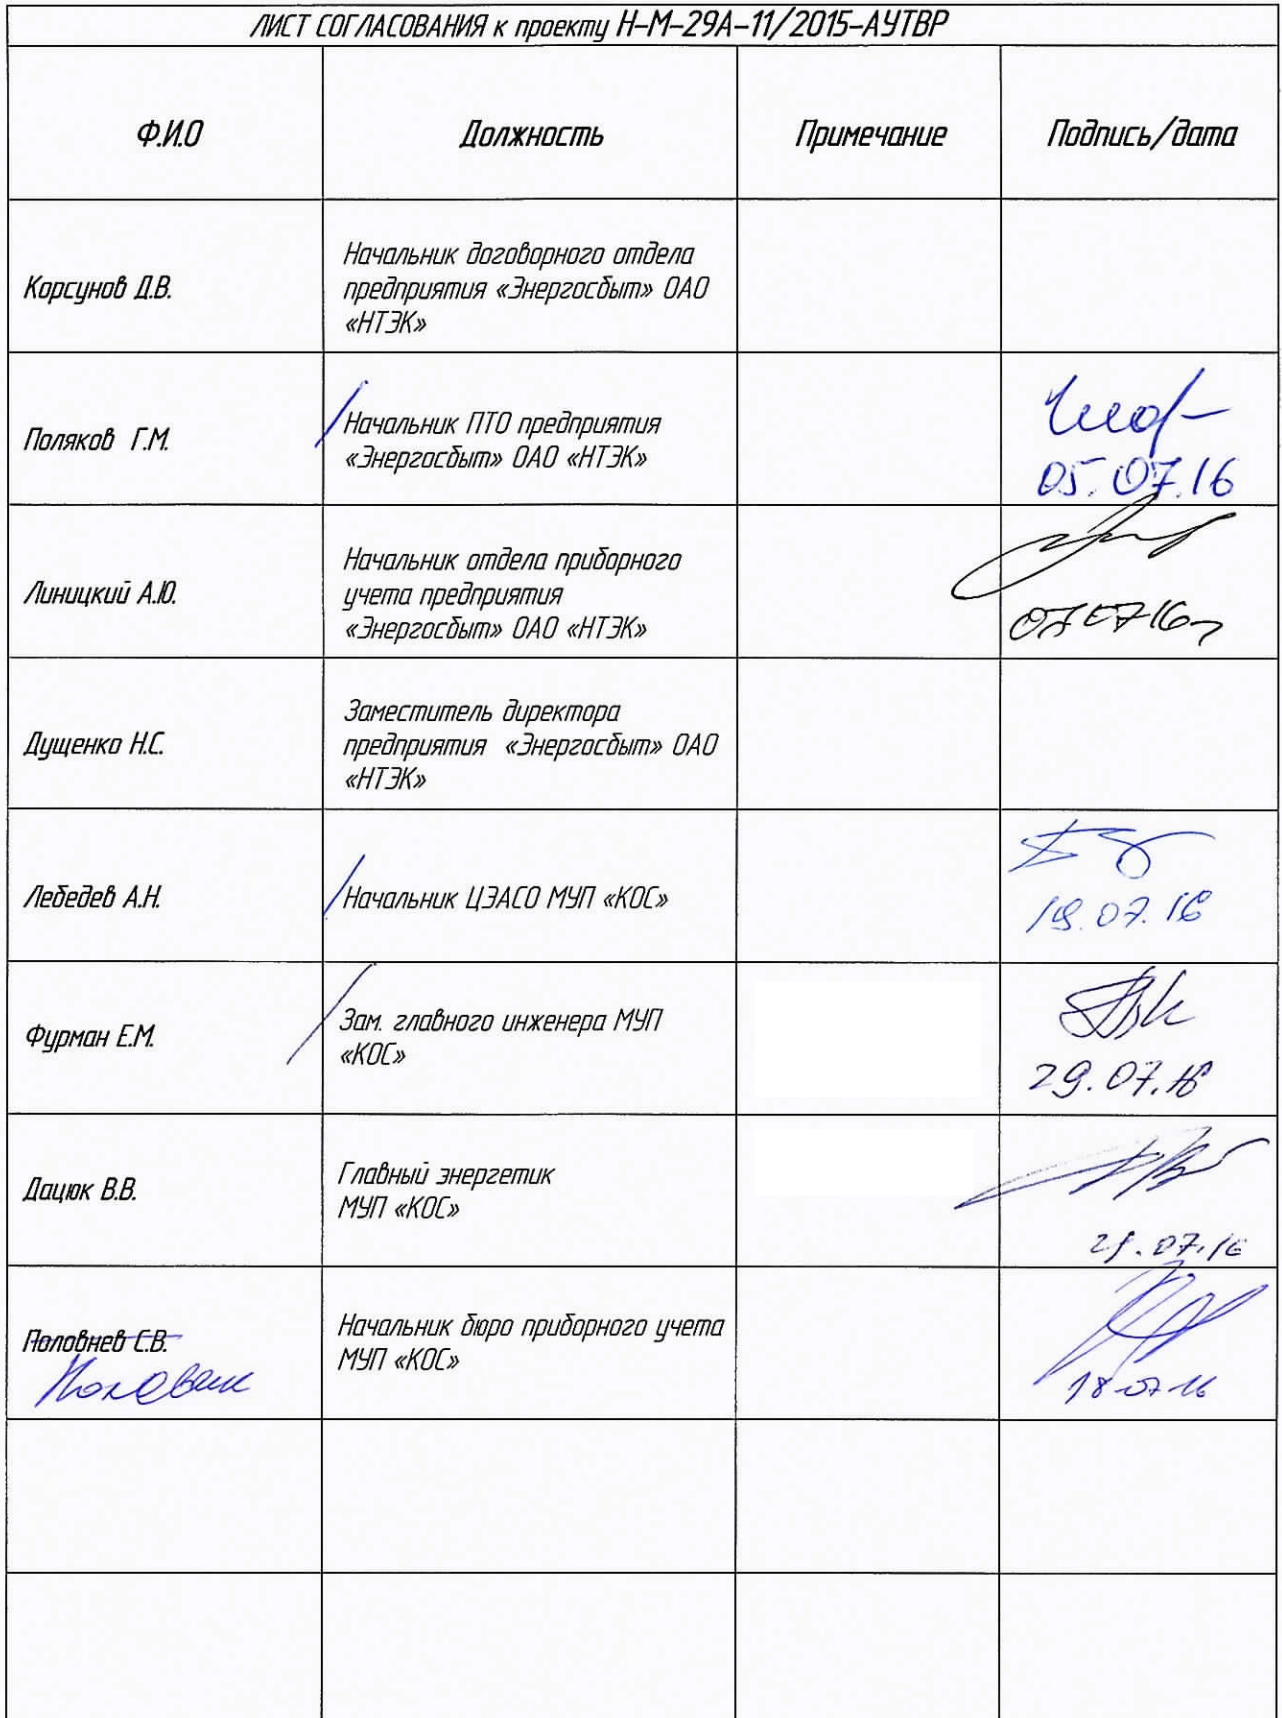 ЛИСТ СОГЛАСОВАНИЯ к проекту Н-М-29А-11/2015-АУТВР
Ф.И.О
Должность
Примечание
Подпись/дата
Корсунов Д.В.
Начальник договорного отдела
предприятия «Энергосбыт» ОАО
«НТЭК»
Поляков Г.М.
Начальник ПТО предприятия
«Энергосбыт» ОАО «НТЭК»
05.07.16
Линицкий А.Ю.
Начальник отдела приборного
учета предприятия
«Энергосбыт» ОАО «НТЭК»
Дущенко Н.С.
Заместитель директора
предприятия «Энергосбыт» ОАО
«НТЭК»
Лебедев А.Н.
Начальник ЦЭАСО МУП «КОС»
19.07.16
Фурман Е.М.
Зам. главного инженера МУП
«КОС»
29.07.16
Дацюк В.В.
Главный энергетик
МУП «КОС»
29.07.16
Половнев С.В.
Начальник бюро приборного учета
МУП «КОС»
18-07-16